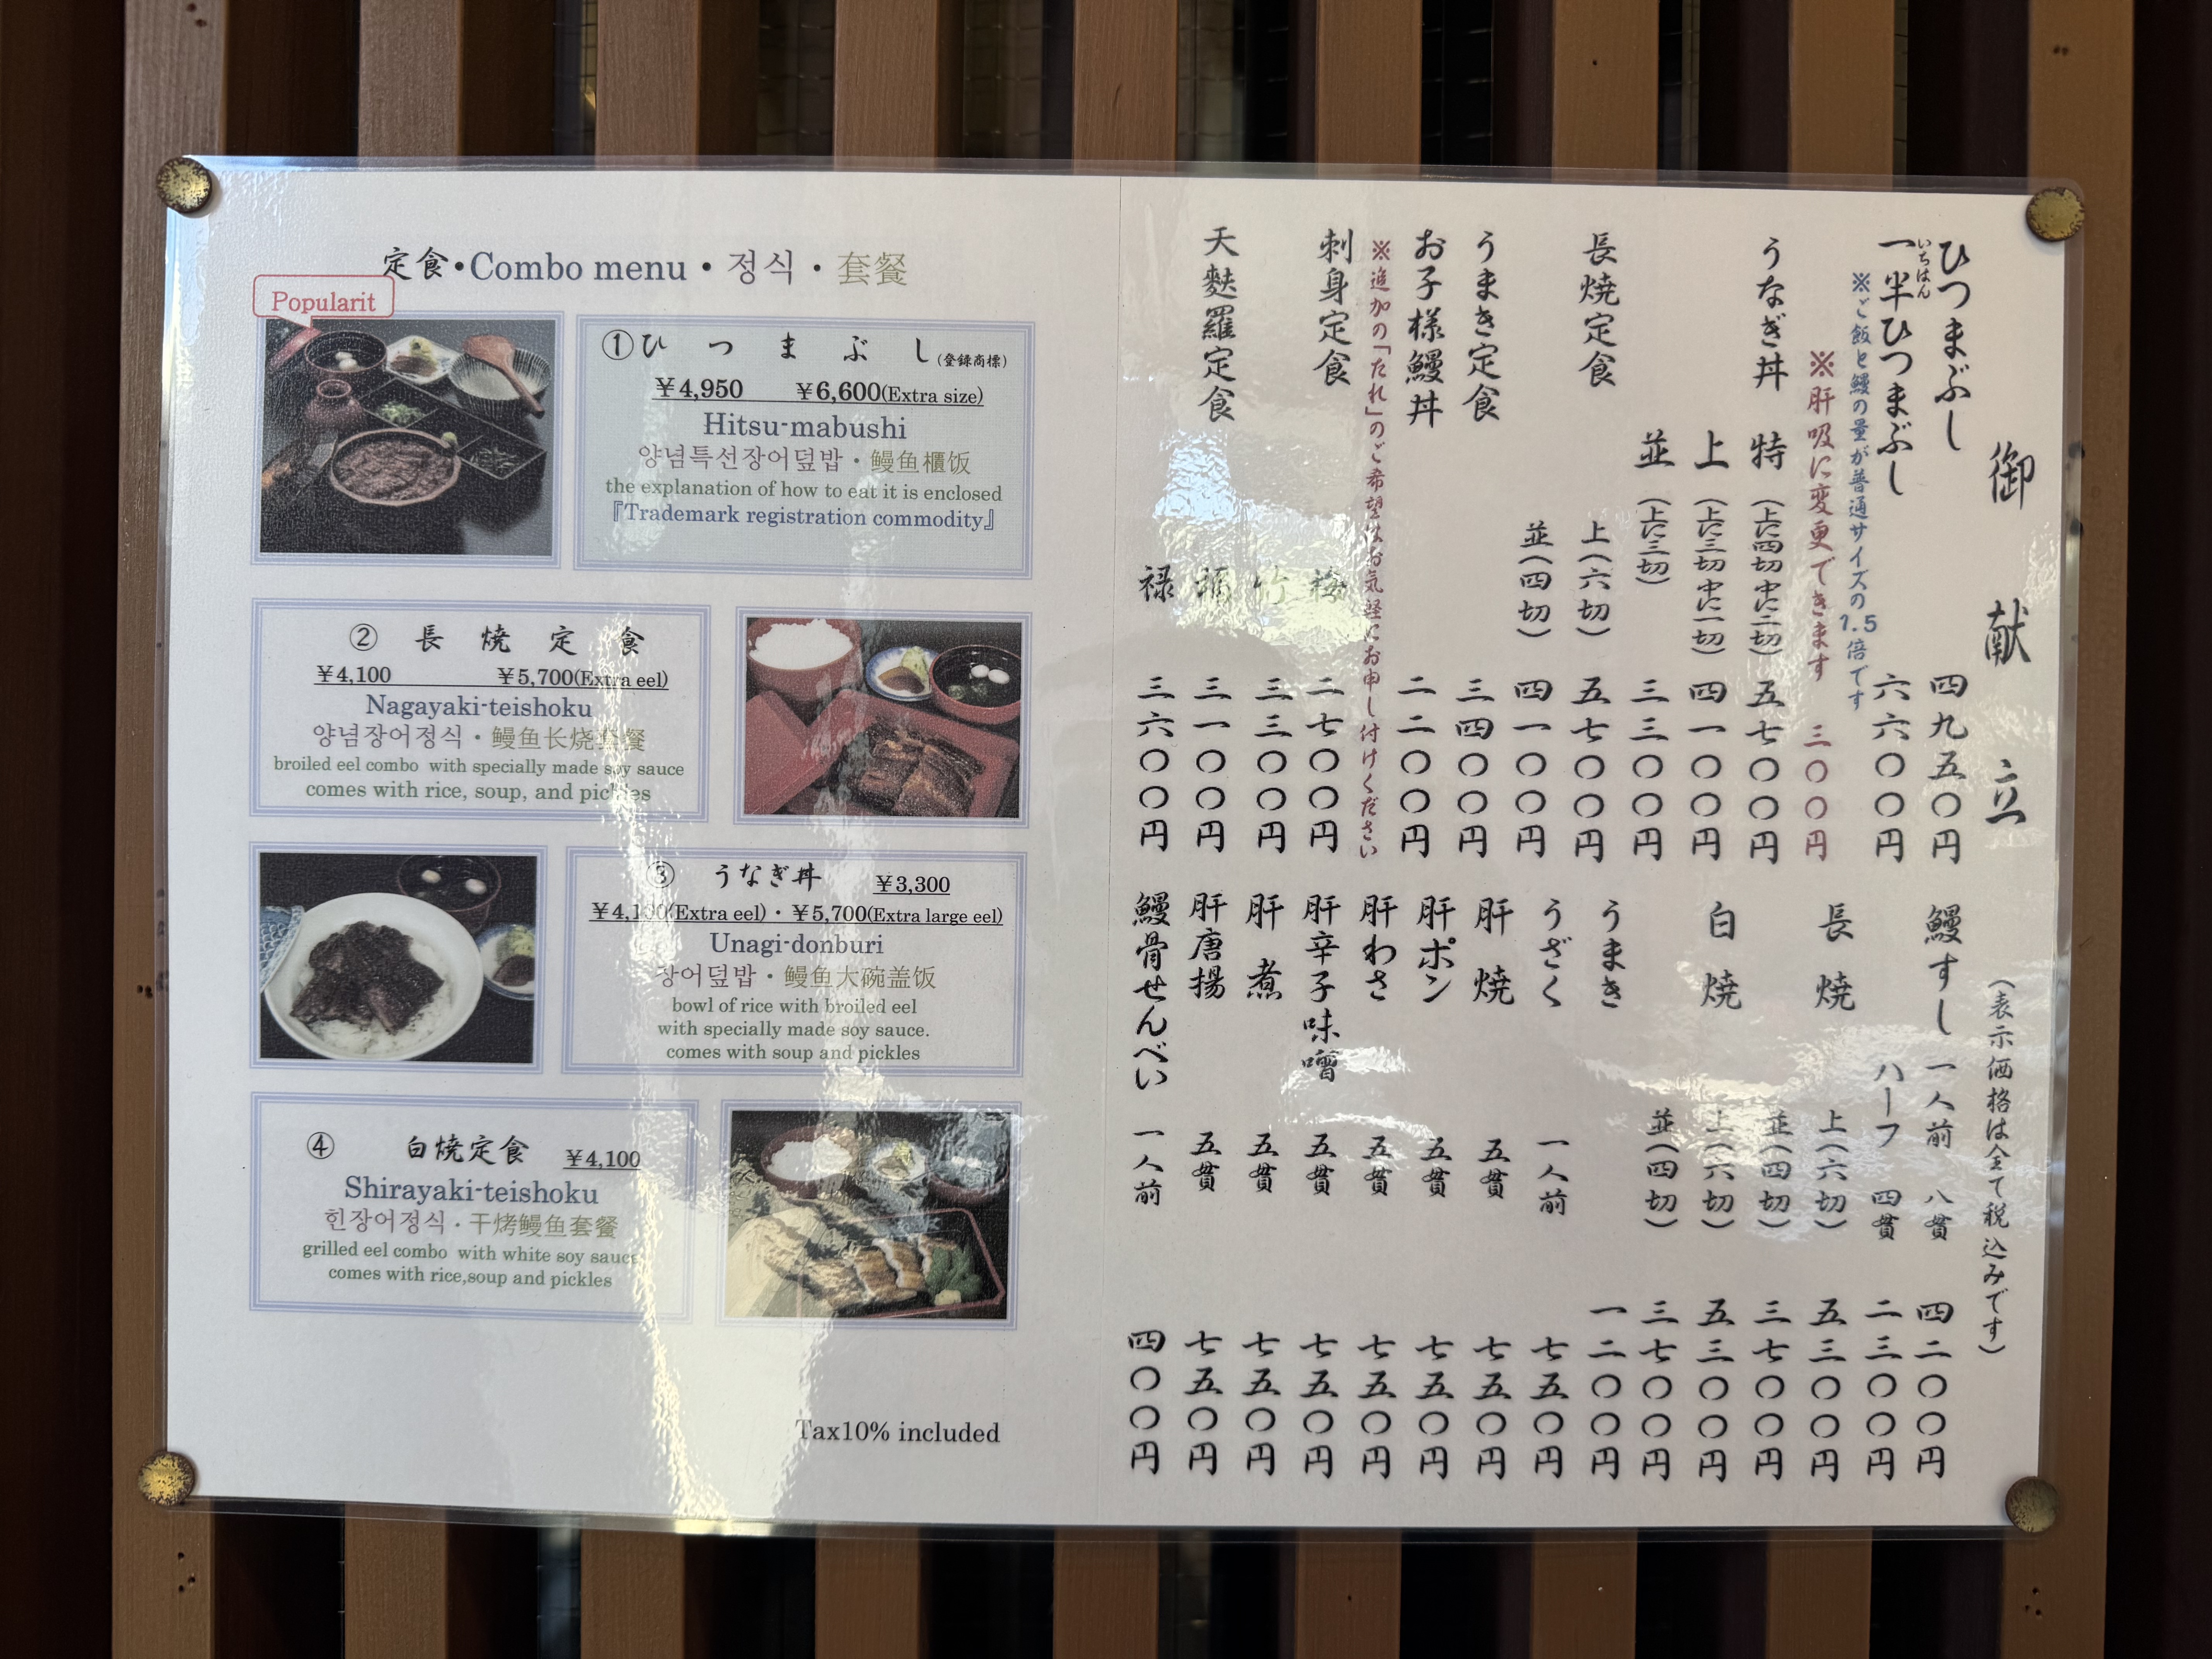 定食・Combo menu・정식・套餐
Popularit
①ひつまぶし(登録商標)
¥4,950 ¥6,600(Extra size)
Hitsu-mabushi
양념특선장어덮밥・鳗鱼櫃饭
the explanation of how to eat it is enclosed
『Trademark registration commodity』
② 長焼定食
¥4,100 ¥5,700(Extra eel)
Nagayaki-teishoku
양념장어정식・鳗鱼长烧套餐
broiled eel combo with specially made soy sauce
comes with rice, soup, and pickles
③ うなぎ丼 ¥3,300
¥4,100(Extra eel)・¥5,700(Extra large eel)
Unagi-donburi
장어덮밥・鳗鱼大碗盖饭
bowl of rice with broiled eel
with specially made soy sauce.
comes with soup and pickles
④ 白焼定食 ¥4,100
Shirayaki-teishoku
힌장어정식・干烤鳗鱼套餐
grilled eel combo with white soy sauce
comes with rice,soup and pickles
Tax10% included
御献立 (表示価格は全て税込みです)
ひつまぶし 四九五〇円
一半ひつまぶし 六六〇〇円
いちはん
※ご飯と鰻の量が普通サイズの1.5倍です
※肝吸に変更できます 三〇〇円
うなぎ丼 特(上に四切中に二切) 五七〇〇円
上(上に三切中に一切) 四一〇〇円
並(上に三切) 三三〇〇円
長焼定食 上(六切) 五七〇〇円
並(四切) 四一〇〇円
うまき定食 三四〇〇円
お子様鰻丼 二二〇〇円
※追加の「たれ」のご希望はお気軽にお申し付けください
刺身定食 梅 二七〇〇円
竹 三三〇〇円
天麩羅定食 福 三一〇〇円
禄 三六〇〇円
鰻すし 一人前 八貫 四二〇〇円
ハーフ 四貫 二三〇〇円
長焼 上(六切) 五三〇〇円
並(四切) 三七〇〇円
白焼 上(六切) 五三〇〇円
並(四切) 三七〇〇円
うまき 一二〇〇円
うざく 一人前 七五〇円
肝焼 五貫 七五〇円
肝ポン 五貫 七五〇円
肝わさ 五貫 七五〇円
肝辛子味噌 五貫 七五〇円
肝煮 五貫 七五〇円
肝唐揚 五貫 七五〇円
鰻骨せんべい 一人前 四〇〇円